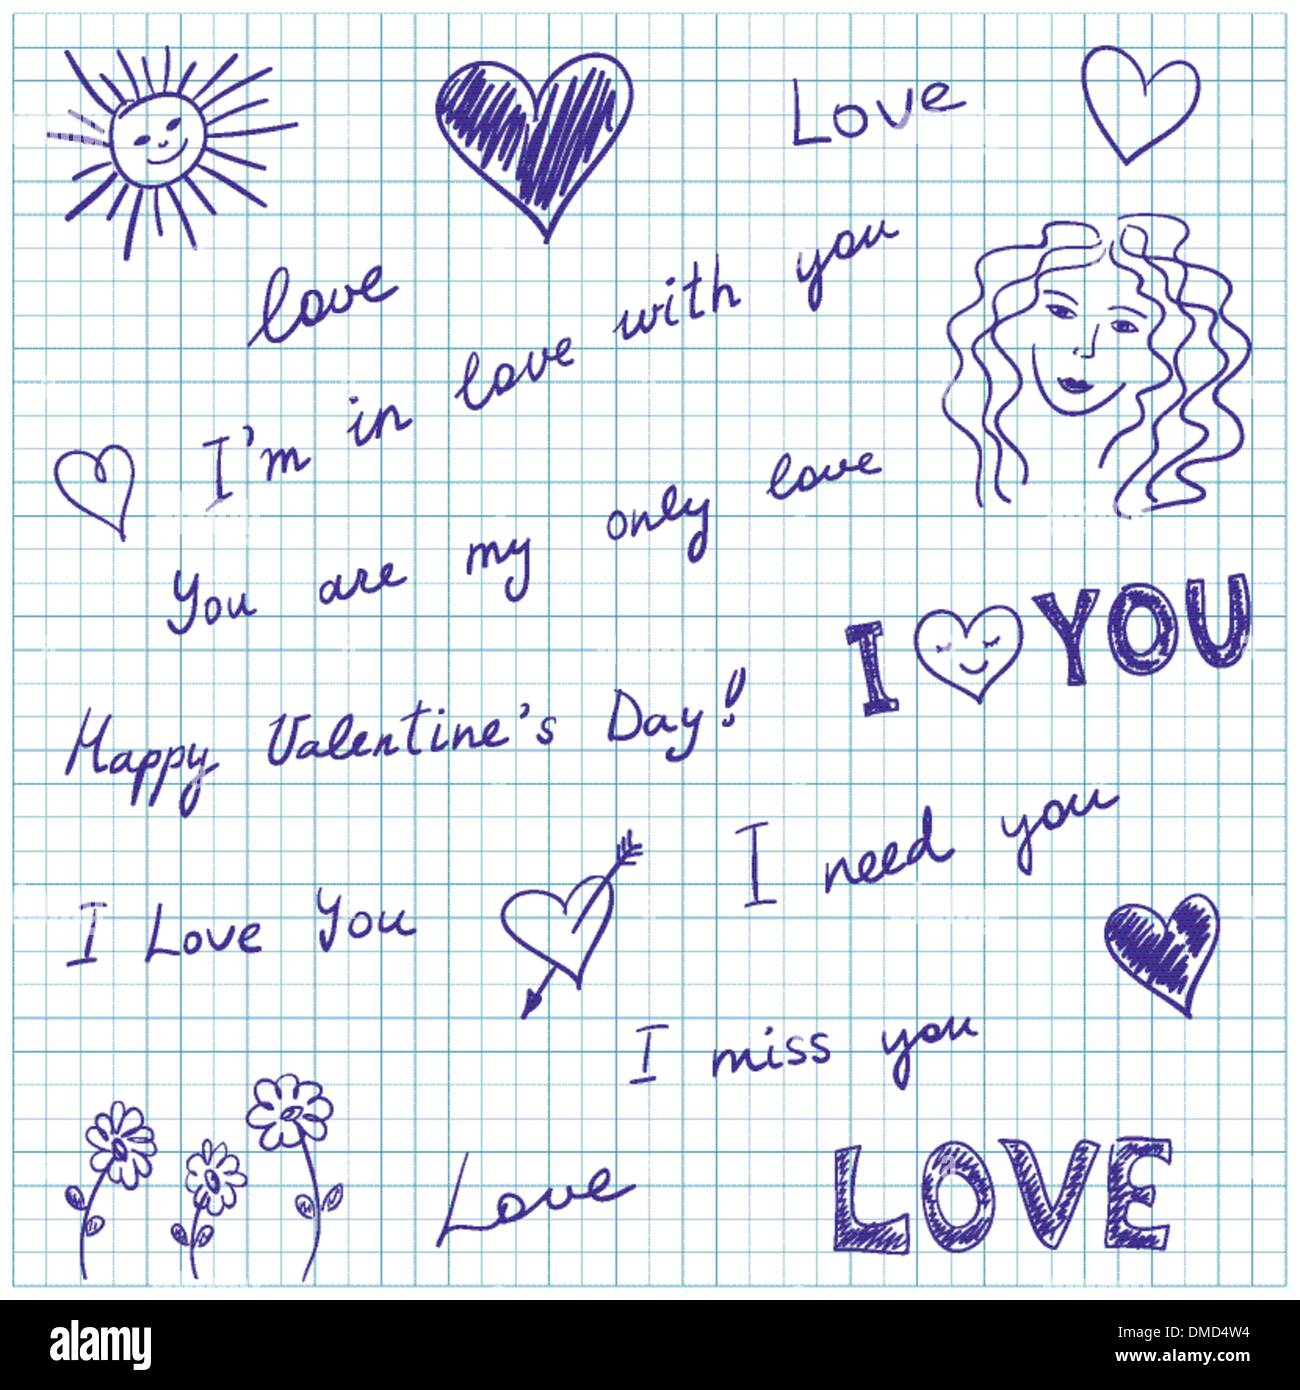 Love
love
I'm in love with you
You are my only love
I YOU
Happy Valentine's Day!
I need you
I Love You
I miss you
Love
LOVE
alamy
Image ID: DMD4W4
www.alamy.com